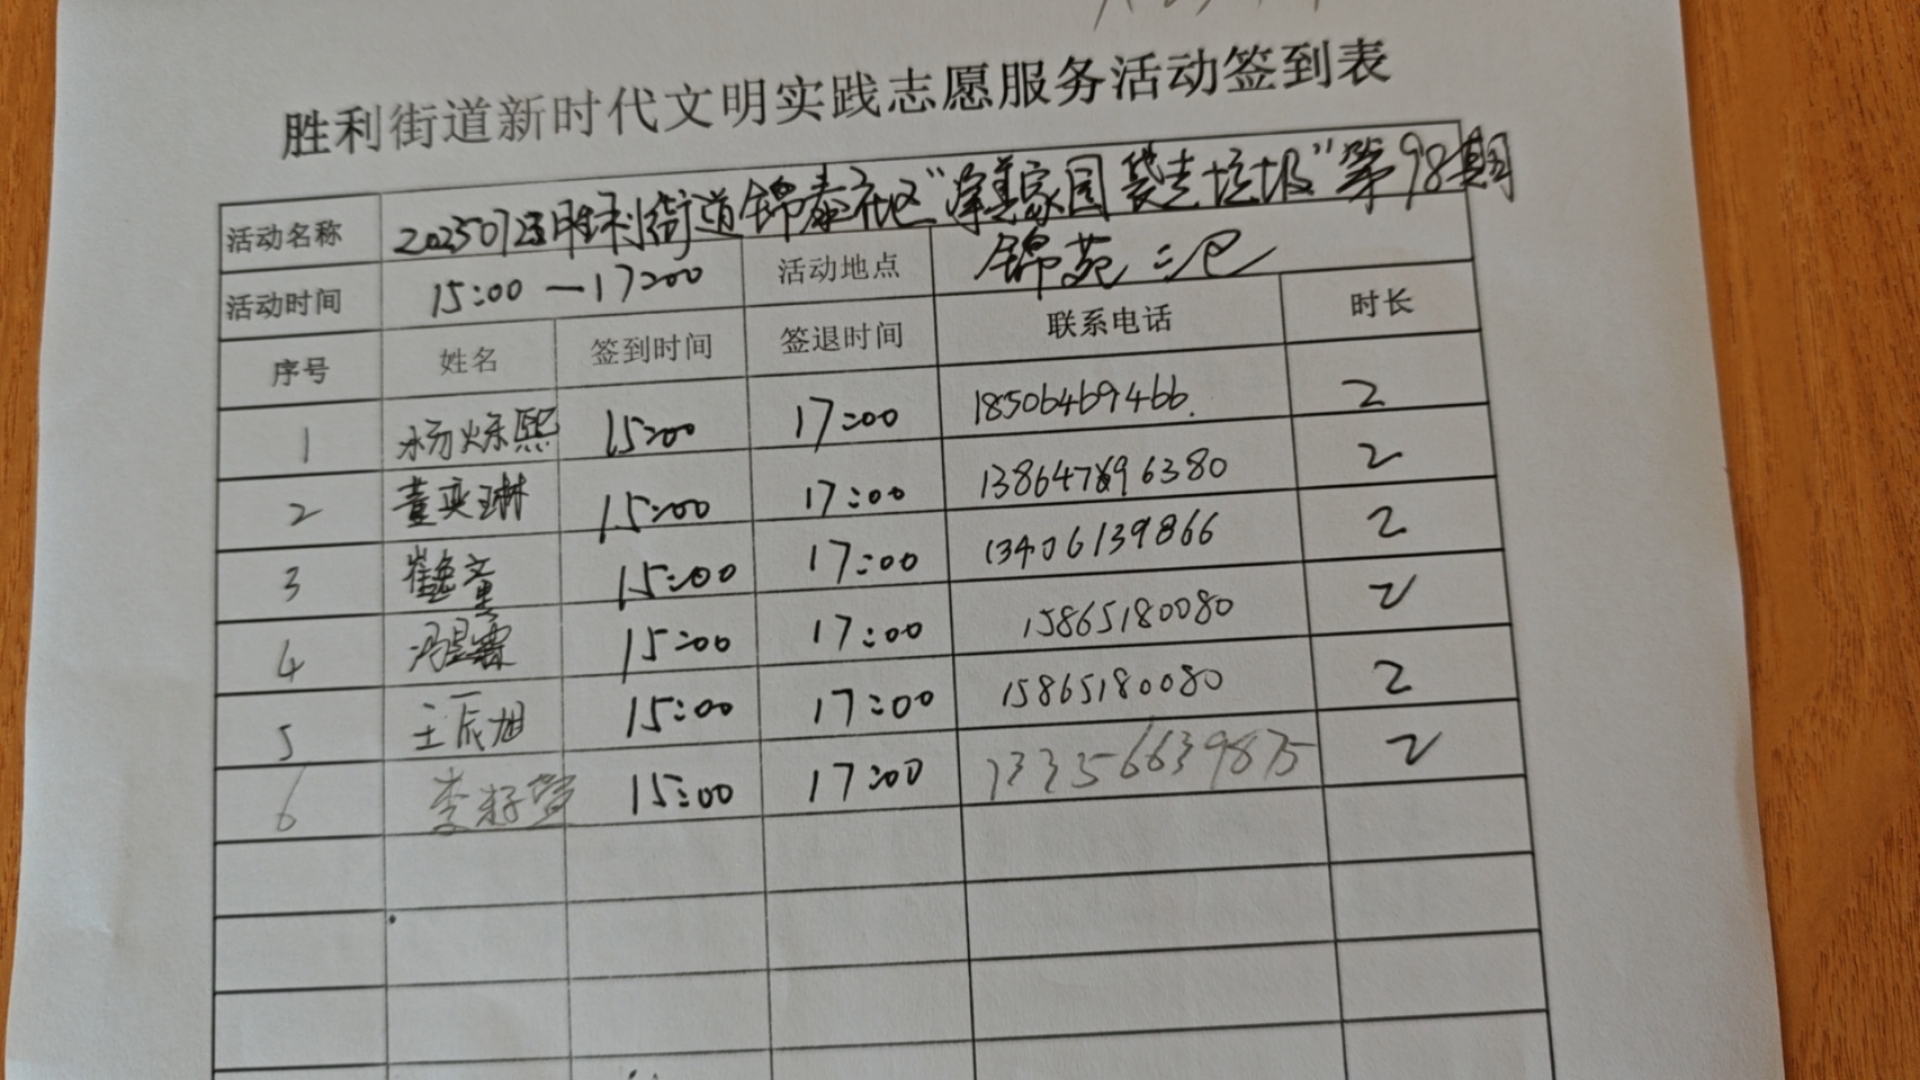 胜利街道新时代文明实践志愿服务活动签到表
活动名称 20250723胜利街道锦泰社区“净美家园 袋走垃圾”第98期
活动时间 15:00—17:00 活动地点 锦苑二区
序号 姓名 签到时间 签退时间 联系电话 时长
1 杨烁熙 15:00 17:00 18506469466. 2
2 董奕琳 15:00 17:00 2
3 15:00 17:00 13406139866 2
4 冯昱霖 15:00 17:00 15865180080 2
5 王辰旭 15:00 17:00 15865180080 2
6 李籽萱 15:00 17:00 2